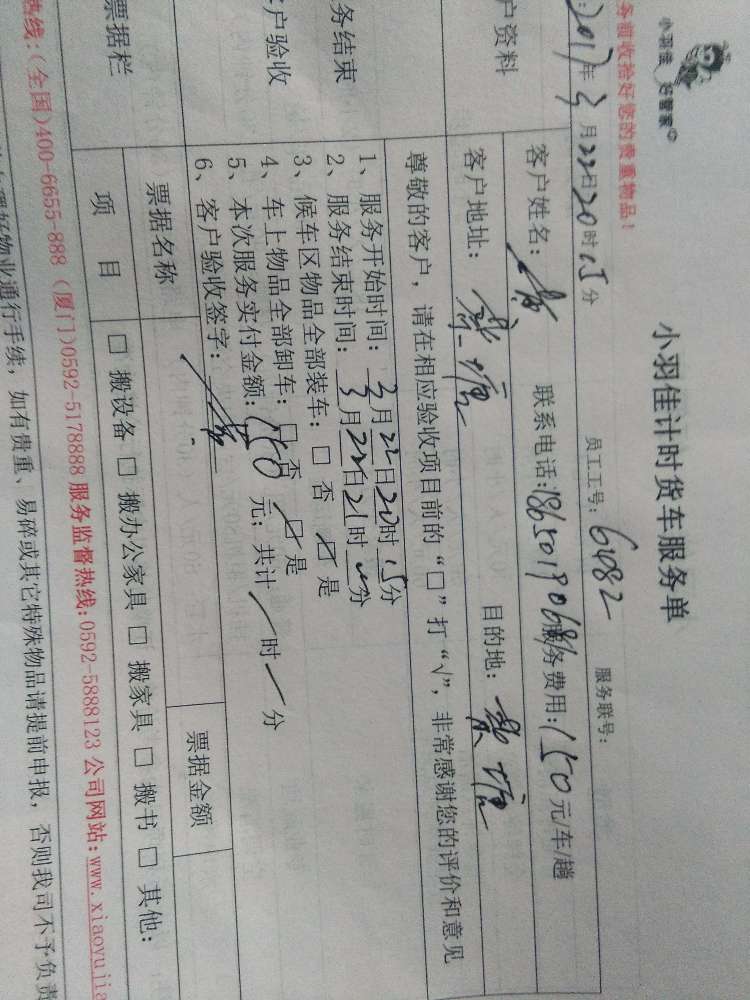 小羽佳 好管家
小羽佳计时货车服务单
务前收拾好您的贵重物品!
员工工号: 6482 服务联号:
:2017年3月22日20时15分
户资料
客户姓名: 联系电话: 服务费用:150元/车/趟
客户地址: 目的地:
尊敬的客户,请在相应验收项目前的“□”打“√”,非常感谢您的评价和意见
务结束
户验收
1、服务开始时间:3月22日20时15分
2、服务结束时间:3月22日21时 分
3、候车区物品全部装车:□ 否 ☑ 是
4、车上物品全部卸车:□ 否 ☑ 是
5、本次服务实付金额:150元;共计/时/分
6、客户验收签字:
票据栏
票据名称 票据金额
项 目 □ 搬设备 □ 搬办公家具 □ 搬家具 □ 搬书 □ 其他:
热线:(全国)400-6655-888 (厦门)0592-5178888 服务监督热线:0592-5888123 公司网站:www.xiaoyujia
理好物业通行手续,如有贵重、易碎或其它特殊物品请提前申报,否则我司不予负责